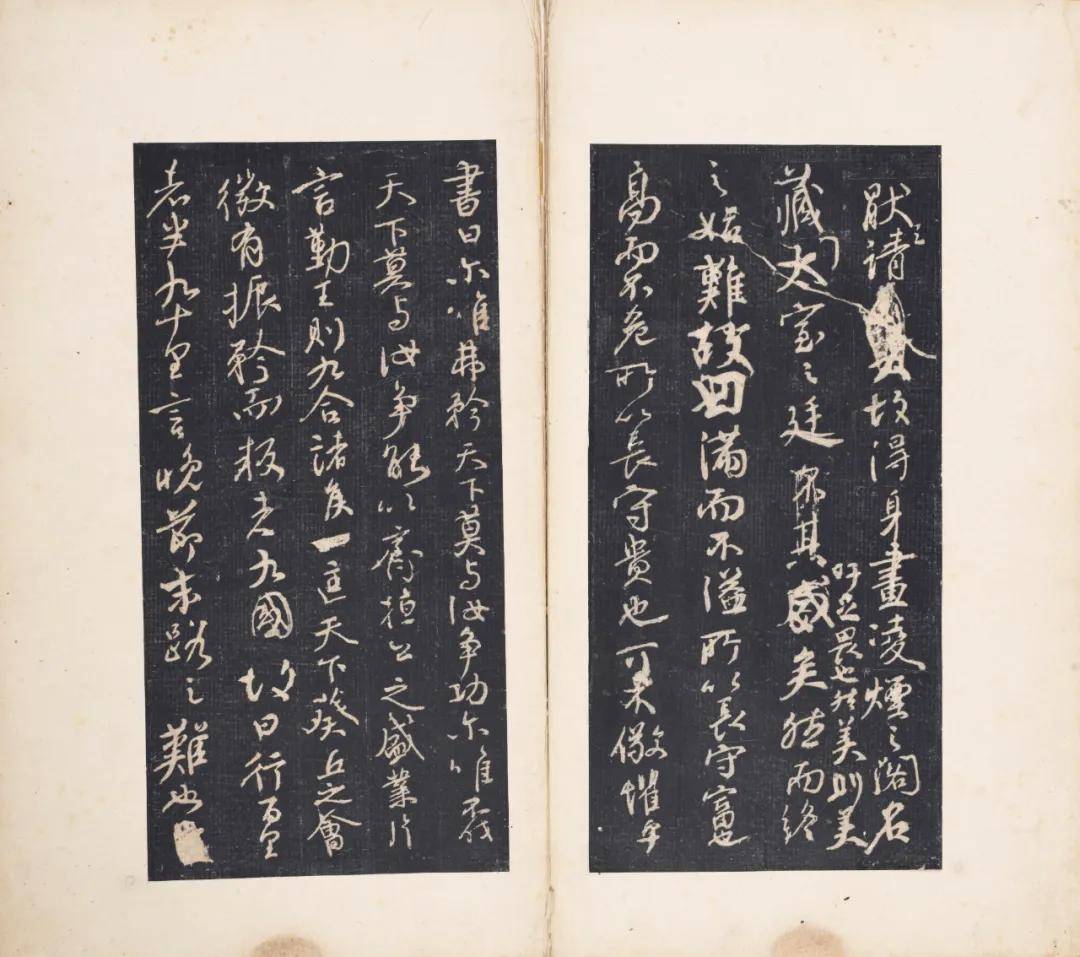 請之故得身畫凌煙之閣名
吁足畏也然美則美
藏太室之廷其盛矣然而終
之始難故曰滿而不溢所以長守富也
高而不危所以長守貴也可不儆懼乎
書曰尔唯弗矜天下莫与汝爭功尔唯不伐
天下莫与汝爭能以齊桓公之盛業片
言勤王則九合諸侯一匡天下葵丘之會
微有振矜而叛者九國故曰行百里
者半九十里言晚節末路之難也